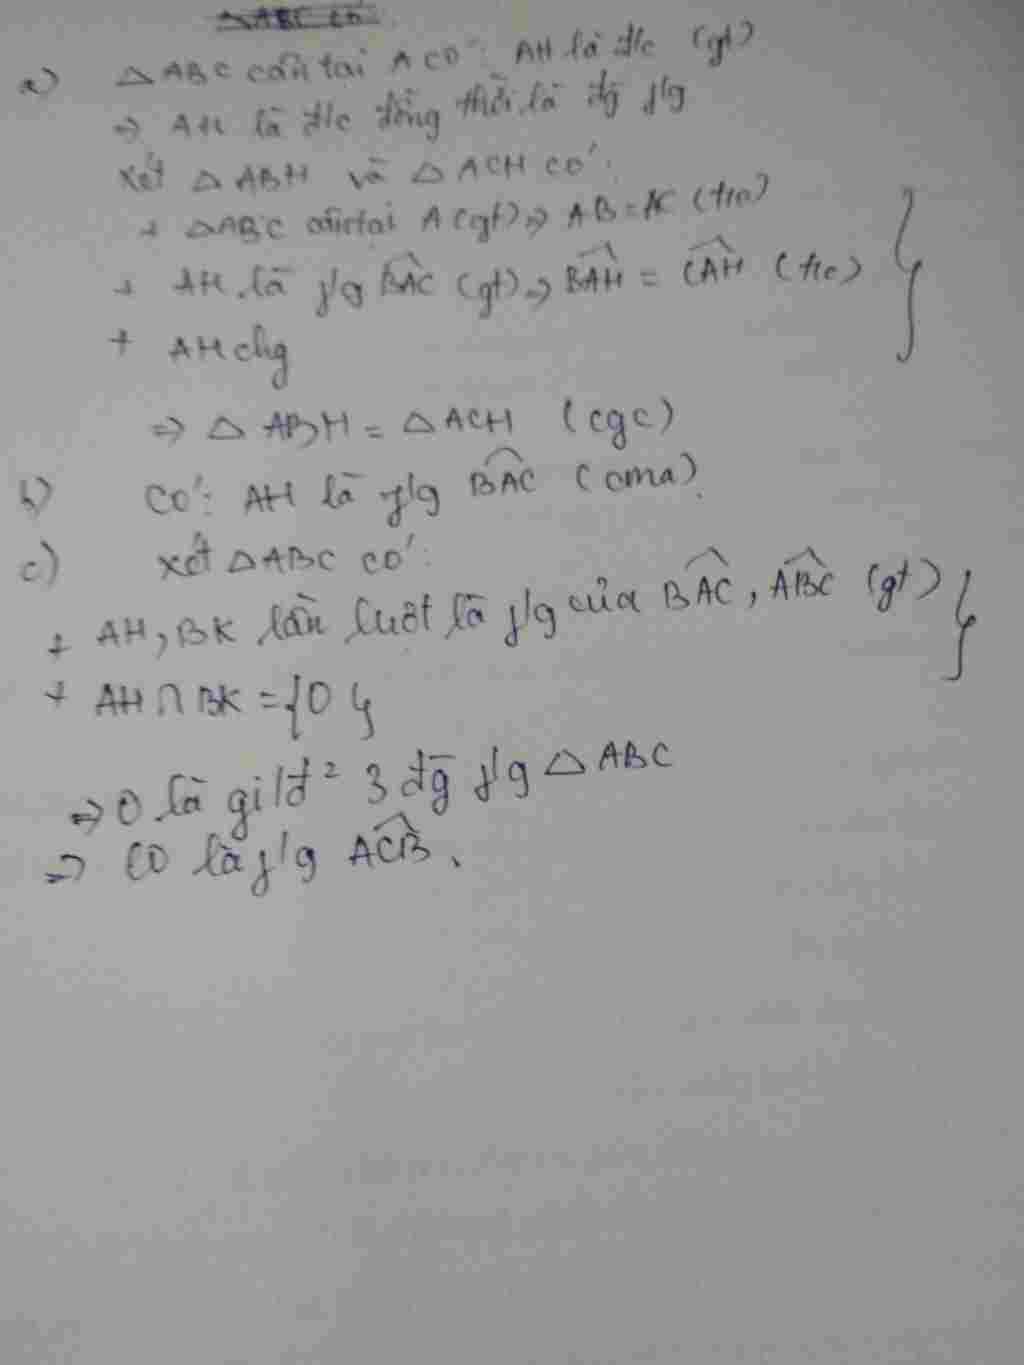 △ABC có
a) △ABC cân tại A có: AH là đ/c (gt)
=> AH là đ/c đồng thời là đg f/g
xét △ABH và △ACH có:
+ △ABC cân tại A (gt) => AB = AC (t/c)
+ AH là f/g BAC (gt) => BAH = CAH (t/c)
+ AH chg
=> △ABH = △ACH (cgc)
b) Có: AH là f/g BAC (cma).
c) xét △ABC có:
+ AH, BK lần lượt là f/g của BAC, ABC (gt)
+ AH ∩ BK = {O}
=> O là gi/đ² 3 đg f/g △ABC
=> CO là f/g ACB.